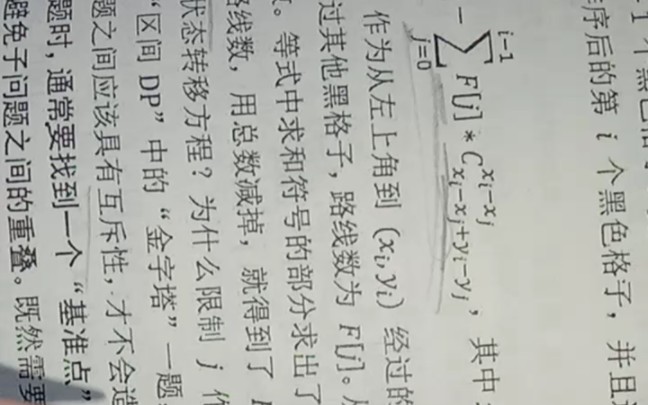 1 个黑色
序后的第 i 个黑色格子，并且
− ∑_{j=0}^{i−1} F[j] * C_{x_i−x_j+y_i−y_j}^{x_i−x_j}，其中
作为从左上角到 (x_i,y_i) 经过的
过其他黑格子，路线数为 F[j]。从
。等式中求和符号的部分求出了
路线数，用总数减掉，就得到了
状态转移方程？为什么限制 j 作
“区间 DP”中的“金字塔”一题
题之间应该具有互斥性，才不会造
题时，通常要找到一个“基准点”
避免子问题之间的重叠。既然需要